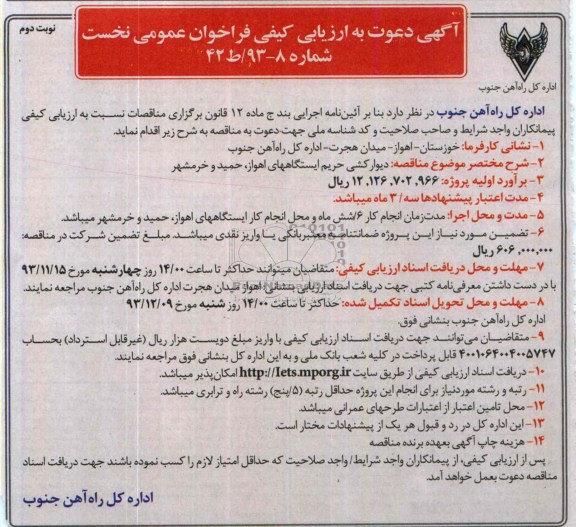 نوبت دوم
آگهی دعوت به ارزیابی کیفی فراخوان عمومی نخست
شماره ۸-۹۳/ط۴۲
اداره کل راه‌آهن جنوب
اداره کل راه‌آهن جنوب در نظر دارد بنا بر آئین‌نامه اجرایی بند ج ماده ۱۲ قانون برگزاری مناقصات نسبت به ارزیابی کیفی
پیمانکاران واجد شرایط و صاحب صلاحیت و کد شناسه ملی جهت-دعوت به مناقصه به شرح زیر اقدام نماید.
۱- نشانی کارفرما: خوزستان-اهواز-میدان هجرت-اداره کل راه‌آهن جنوب
۲- شرح مختصر موضوع مناقصه: دیوارکشی حریم ایستگاههای اهواز، حمید و خرمشهر
۳- برآورد اولیه پروژه: ۱۲,۱۲۶,۷۰۲,۹۶۶ ریال
۴- مدت اعتبار پیشنهادها سه/۳ ماه میباشد.
۵- مدت و محل اجرا: مدت‌زمان انجام کار ۶/شش ماه و محل انجام کار ایستگاههای اهواز، حمید و خرمشهر میباشد.
۶- تضمین مورد نیاز این پروژه ضمانتنامه معتبر بانکی یا واریز نقدی میباشد. مبلغ تضمین شرکت در مناقصه:
۶۰۶,۰۰۰,۰۰۰ ریال
۷- مهلت و محل دریافت اسناد ارزیابی کیفی: متقاضیان میتوانند حداکثر تا ساعت ۱۴/۰۰ روز چهارشنبه مورخ ۹۳/۱۱/۱۵
با در دست داشتن معرفی‌نامه کتبی جهت دریافت اسناد ارزیابی بنشانی اهواز میدان هجرت اداره کل راه‌آهن جنوب مراجعه نمایند.
۸- مهلت و محل تحویل اسناد تکمیل شده: حداکثر تا ساعت ۱۴/۰۰ روز شنبه مورخ ۹۳/۱۲/۰۹
اداره کل راه‌آهن جنوب بنشانی فوق.
۹- متقاضیان می‌توانند جهت دریافت اسناد ارزیابی کیفی با واریز مبلغ دویست هزار ریال (غیرقابل استرداد) بحساب
۴۰۰۱۰۶۴۰۰۴۰۰۵۷۴۷ قابل پرداخت در کلیه شعب بانک ملی و به این اداره کل بنشانی فوق مراجعه نمایند.
۱۰- دریافت اسناد ارزیابی کیفی از طریق سایت http://Iets.mporg.ir امکان‌پذیر میباشد.
۱۱- رتبه و رشته موردنیاز برای انجام این پروژه حداقل رتبه (۵/پنج) رشته راه و ترابری میباشد.
۱۲- محل تامین اعتبار از اعتبارات طرحهای عمرانی میباشد.
۱۳- این اداره کل در رد و قبول هر یک از پیشنهادات مختار است.
۱۴- هزینه چاپ آگهی بعهده برنده مناقصه
پس از ارزیابی کیفی، از پیمانکاران واجد شرایط/واجد صلاحیت که حداقل امتیاز لازم را کسب نموده باشند جهت دریافت اسناد
مناقصه دعوت بعمل خواهد آمد.
اداره کل راه‌آهن جنوب